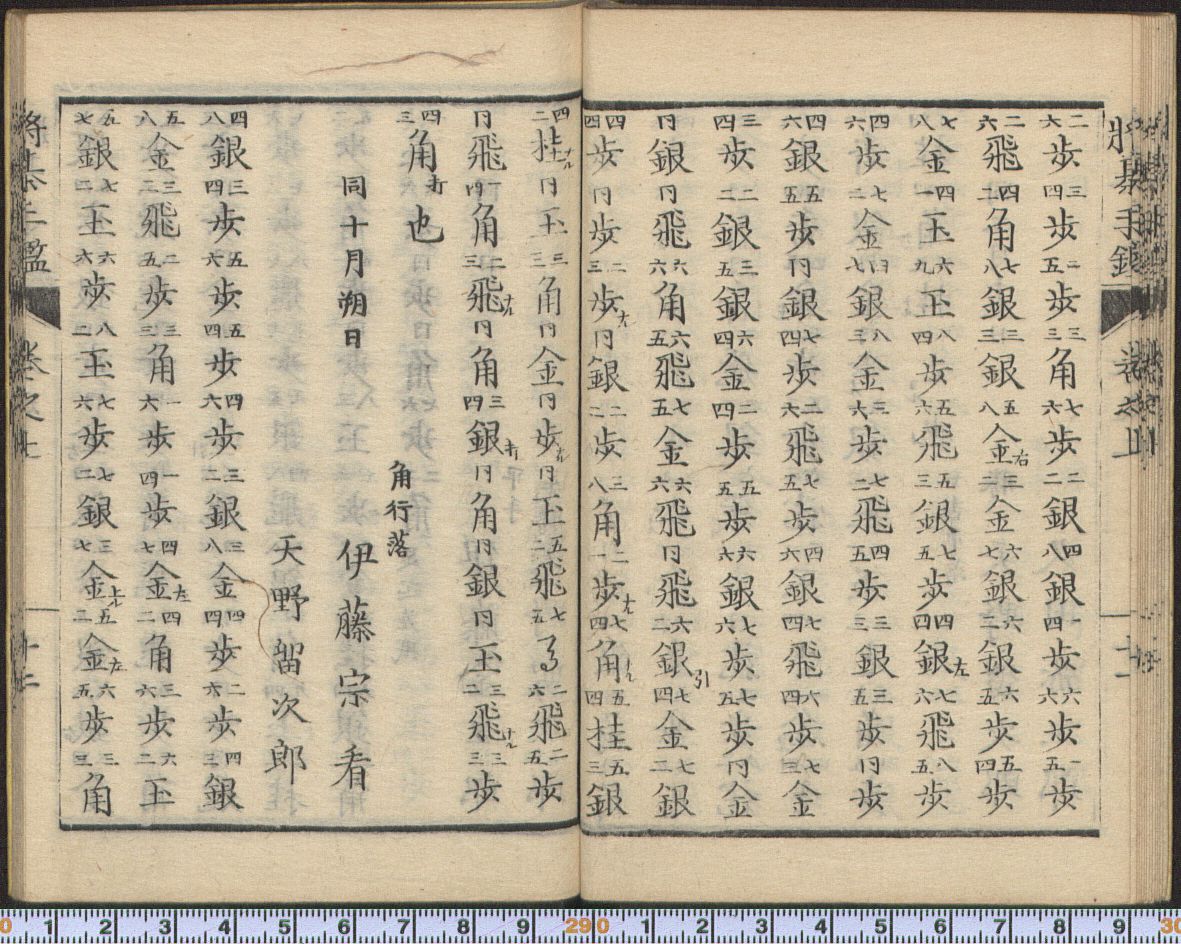 将棊手鑑　巻之上　十二
二六歩三四歩二五歩三三角七六歩二二銀四八銀一四歩六六歩一五歩
二六飛四二角七八銀三三銀五八金右三二金六七銀六二銀六五歩五四歩
七八金四一玉六九玉八四歩五六飛五三銀七五歩四四銀左七六飛八五歩
四六歩七二金四七銀八三金三六歩七二飛四五歩三三銀三五歩同歩
四六銀五五歩同銀七四歩二六飛七五歩四六銀七四飛六四歩七三金
三四歩二二銀三五銀六四金二四歩五五歩六六銀七六歩七五歩同金
同銀同飛六六角六五飛七五金六六飛同飛六二銀引七四金七二銀
四四歩同歩二三歩ナル同銀二二歩三八角二一歩ナル七四角ナル五四桂五三銀
四二桂ナル同玉三三角同金同歩ナル同玉五二飛七五馬二六飛二五歩
同飛同角二三飛ナル同角三四銀打同角同銀同玉三二飛ナル三三歩
四三角打也
同十月朔日
角行落
伊藤宗看
天野留次郎
四八銀三四歩五六歩五四歩四六歩三二銀三八金四四歩二六歩四三銀
五八金三二飛二五歩三三角一六歩一四歩四七金左四二角三六歩六二玉
五七銀七二玉六六歩八二玉七六歩七二銀三七金上ル五二金左六五歩三三角
将棊手鑑　巻之上　十三
0 1 2 3 4 5 6 7 8 9 29 0 1 2 3 4 5 6 7 8 9 30